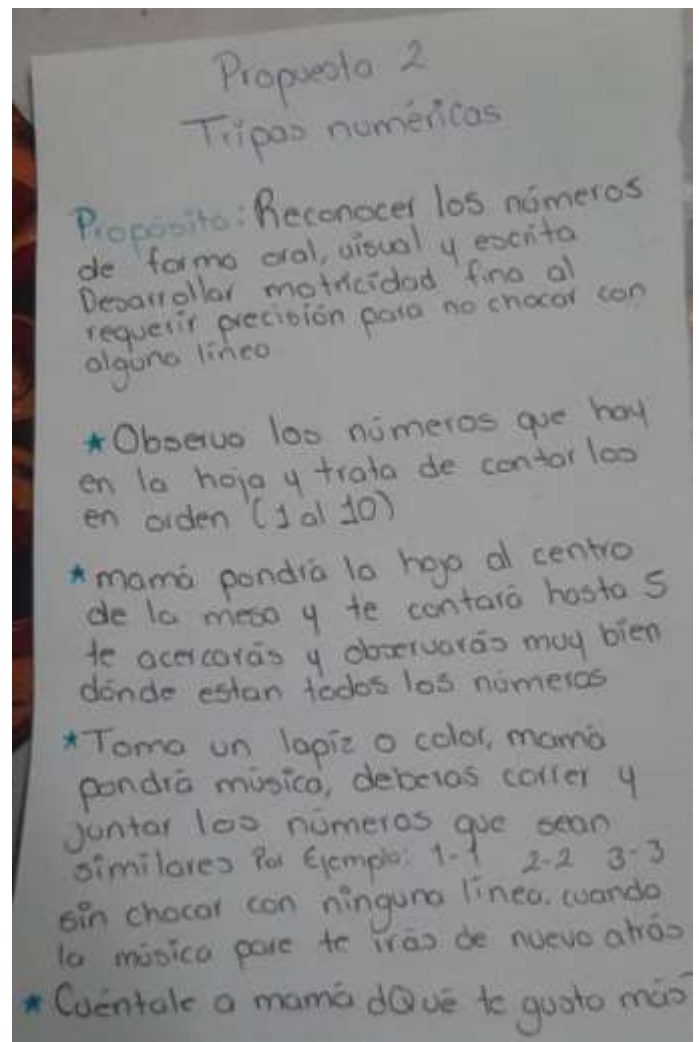 Propuesta 2
Tripas numéricas
Propósito: Reconocer los números
de forma oral, visual y escrita
Desarrollar motricidad fina al
requerir precisión para no chocar con
alguna línea
★ Observa los números que hay
en la hoja y trata de contar los
en orden (1 al 10)
★ mamá pondrá la hoja al centro
de la mesa y te contará hasta 5
te acercarás y observarás muy bien
dónde estan todos los números
★ Toma un lapiz o color, mamá
pondrá música, deberas correr y
juntar los números que sean
similares Por Ejemplo: 1-1 2-2 3-3
sin chocar con ninguna línea. cuando
la música pare te irás de nuevo atrás
★ Cuéntale a mamá ¿Qué te gusto más